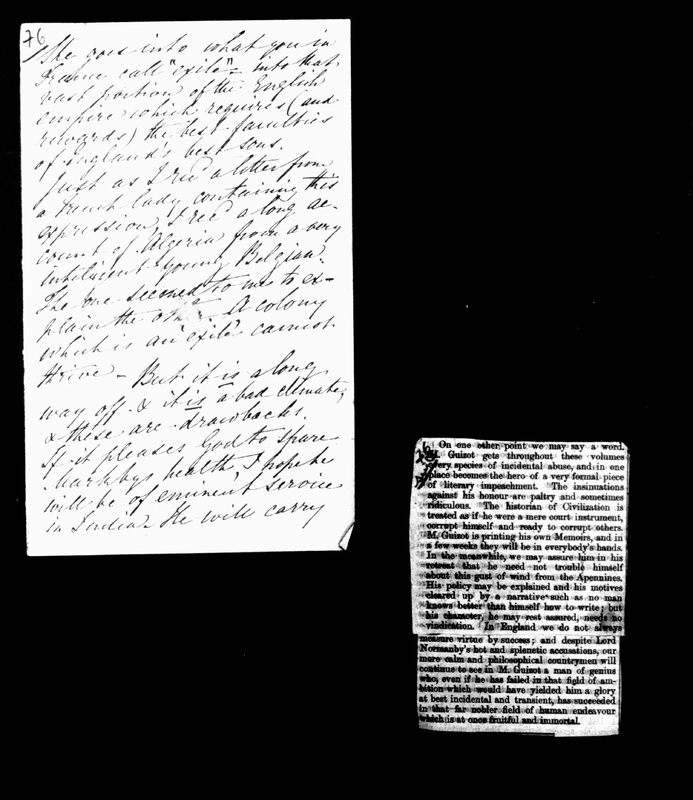 76
He goes into what you in
France call "exile" - into that
vast portion of the English
empire which requires (and
rewards) the best faculties
of England's best sons.
Just as I rec'd a letter from
a French lady containing this
expression, I rec'd a long ac-
count of Algeria from a very
intelligent young Belgian.
The one seemed to me to ex-
plain the other. A colony
which is an "exile" cannot
thrive - But it is a long
way off & it is a bad climate,
& these are drawbacks.
If it pleases God to spare
Markby's health, I hope he
will be of eminent service
in India. He will carry
On one other point we may say a word.
M. Guizot gets throughout these volumes
every species of incidental abuse, and in one
place becomes the hero of a very formal piece
of literary impeachment. The insinuations
against his honour are paltry and sometimes
ridiculous. The historian of Civilization is
treated as if he were a mere court instrument,
corrupt himself and ready to corrupt others.
M. Guizot is printing his own Memoirs, and in
a few weeks they will be in everybody's hands.
In the meanwhile, we may assure him in his
retreat that he need not trouble himself
about this gust of wind from the Apennines.
His policy may be explained and his motives
cleared up by a narrative such as no man
knows better than himself how to write; but
his character, he may rest assured, needs no
vindication. In England we do not always
measure virtue by success; and despite Lord
Normanby's hot and splenetic accusations, our
more calm and philosophical countrymen will
continue to see in M. Guizot a man of genius
who, even if he has failed in that field of am-
bition which would have yielded him a glory
at best incidental and transient, has succeeded
in that far nobler field of human endeavour
which is at once fruitful and immortal.